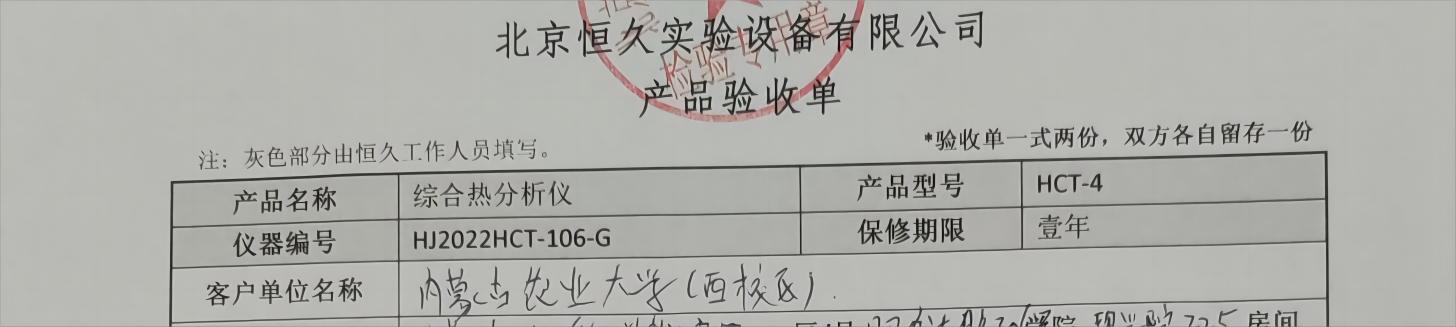 北京恒久实验设备有限公司
检验专用章
产品验收单
*验收单一式两份，双方各自留存一份
注：灰色部分由恒久工作人员填写。
产品名称 综合热分析仪 产品型号 HCT-4
仪器编号 HJ2022HCT-106-G 保修期限 壹年
客户单位名称 内蒙古农业大学(西校区).
房间